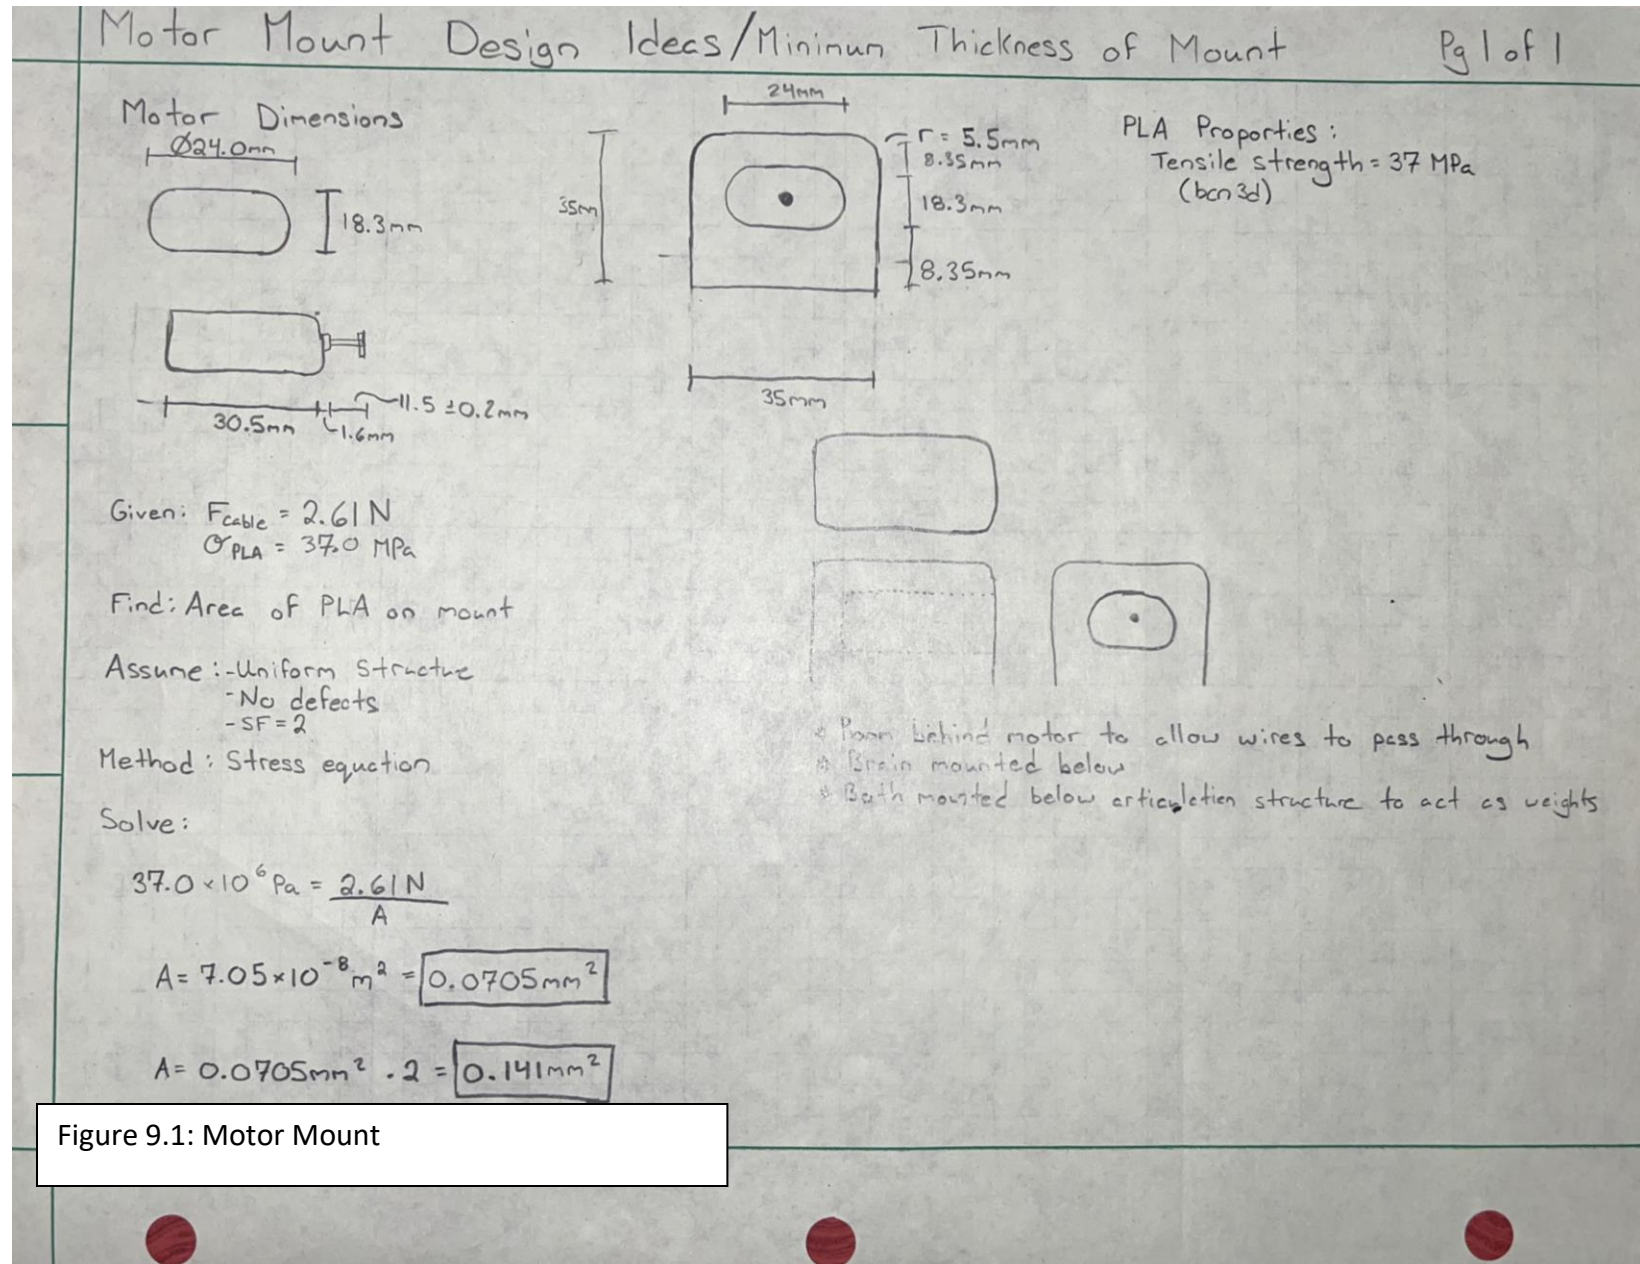 Motor Mount Design Ideas/Minimun Thickness of Mount Pg 1 of 1
Motor Dimensions
Ø24.0mm
18.3mm
30.5mm
1.6mm
11.5 ±0.2mm
24mm
35mm
r = 5.5mm
8.35mm
18.3mm
8.35mm
35mm
PLA Proporties:
Tensile strength = 37 MPa
(bcn3d)
Given: Fcable = 2.61 N
σPLA = 37.0 MPa
Find: Area of PLA on mount
Assume: -Uniform Structure
-No defects
-SF=2
Method: Stress equation
Solve:
37.0 × 10⁶ Pa = 2.61 N
A
A = 7.05×10⁻⁸ m² = 0.0705mm²
A = 0.0705mm² · 2 = 0.141mm²
* Room behind motor to allow wires to pass through
* Brain mounted below
* Both mounted below articulation structure to act as weights
Figure 9.1: Motor Mount